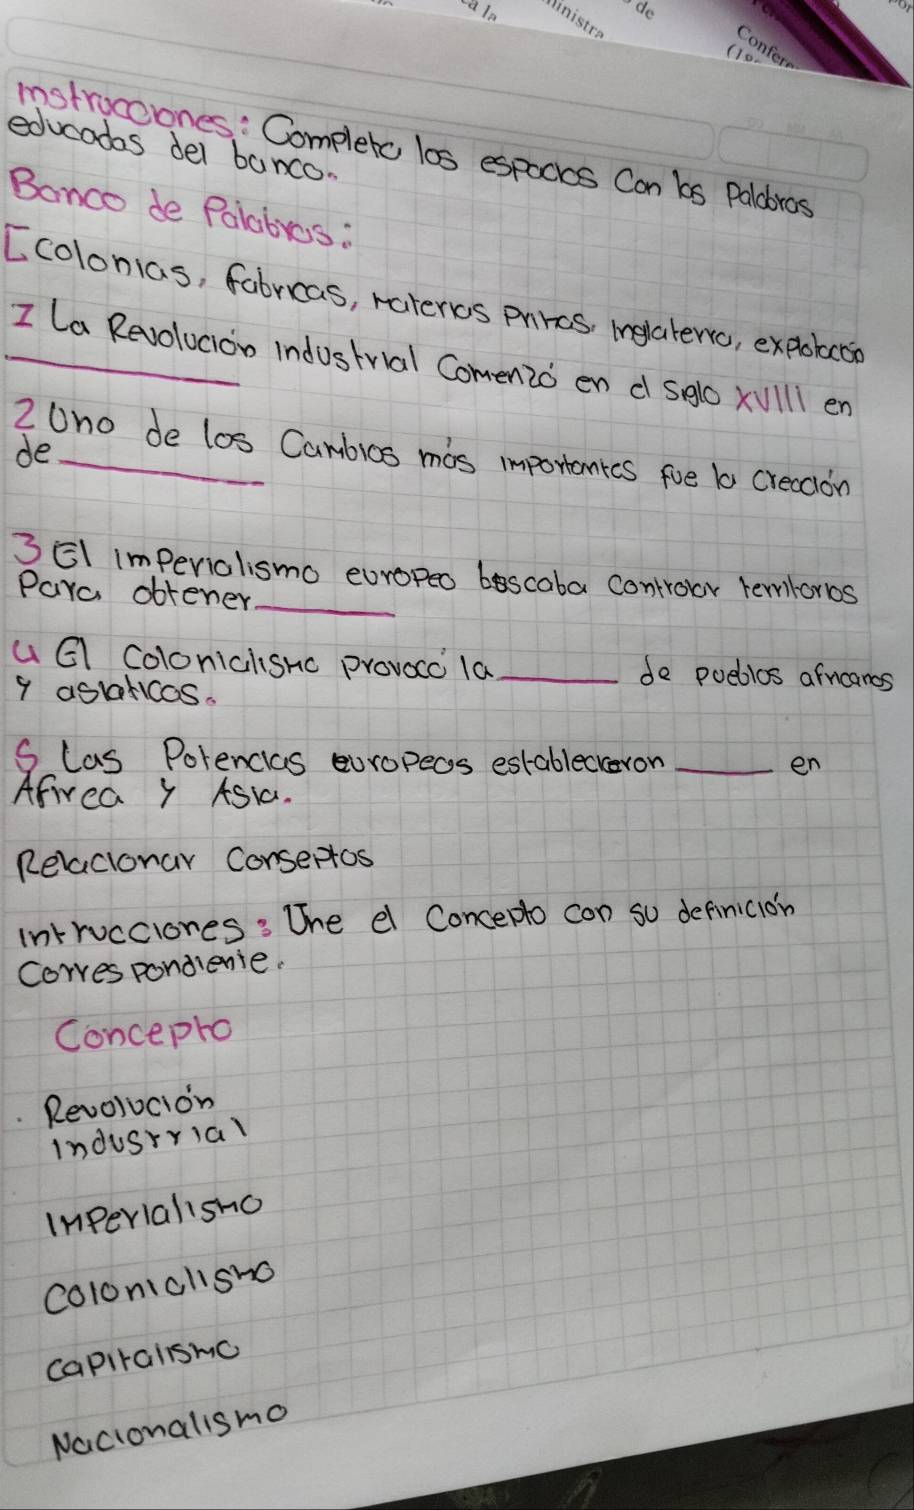 a la
ministra
de
Confer
Instrucciones: Completa los espacios con las palabras
educadas del banco.
Banco de Palabras:
[colonias, fabricas, materias primas, inglaterra, explotación
1 La Revolución industrial Comenzó en el siglo XVIII en
2 Uno de los Cambios más importantes fue la creación
de
3 El imperialismo europeo buscaba controlar territorios
Para obtener
4 El Colonialismo provocó la de pueblos africanos
y asiaticos.
5 Las Potencias europeas establecieron en
Afirea y Asia.
Relacionar Conseptos
intrucciones: Une el Concepto con su definición
Correspondiente.
Concepto
Revolución
industrial
imperialismo
colonialismo
capitalismo
Nacionalismo